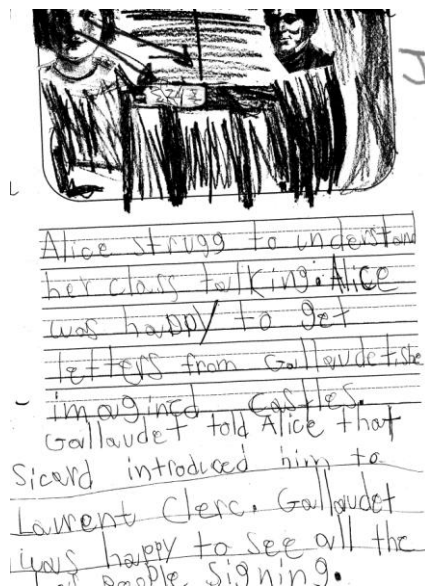 Alice strugg to understan
her class talking. Alice
was happy to get
letters from Gallaudet. she
imagined castles.
Gallaudet told Alice that
Sicard introduced him to
Laurent Clerc. Gallaudet
was happy to see all the
people signing.